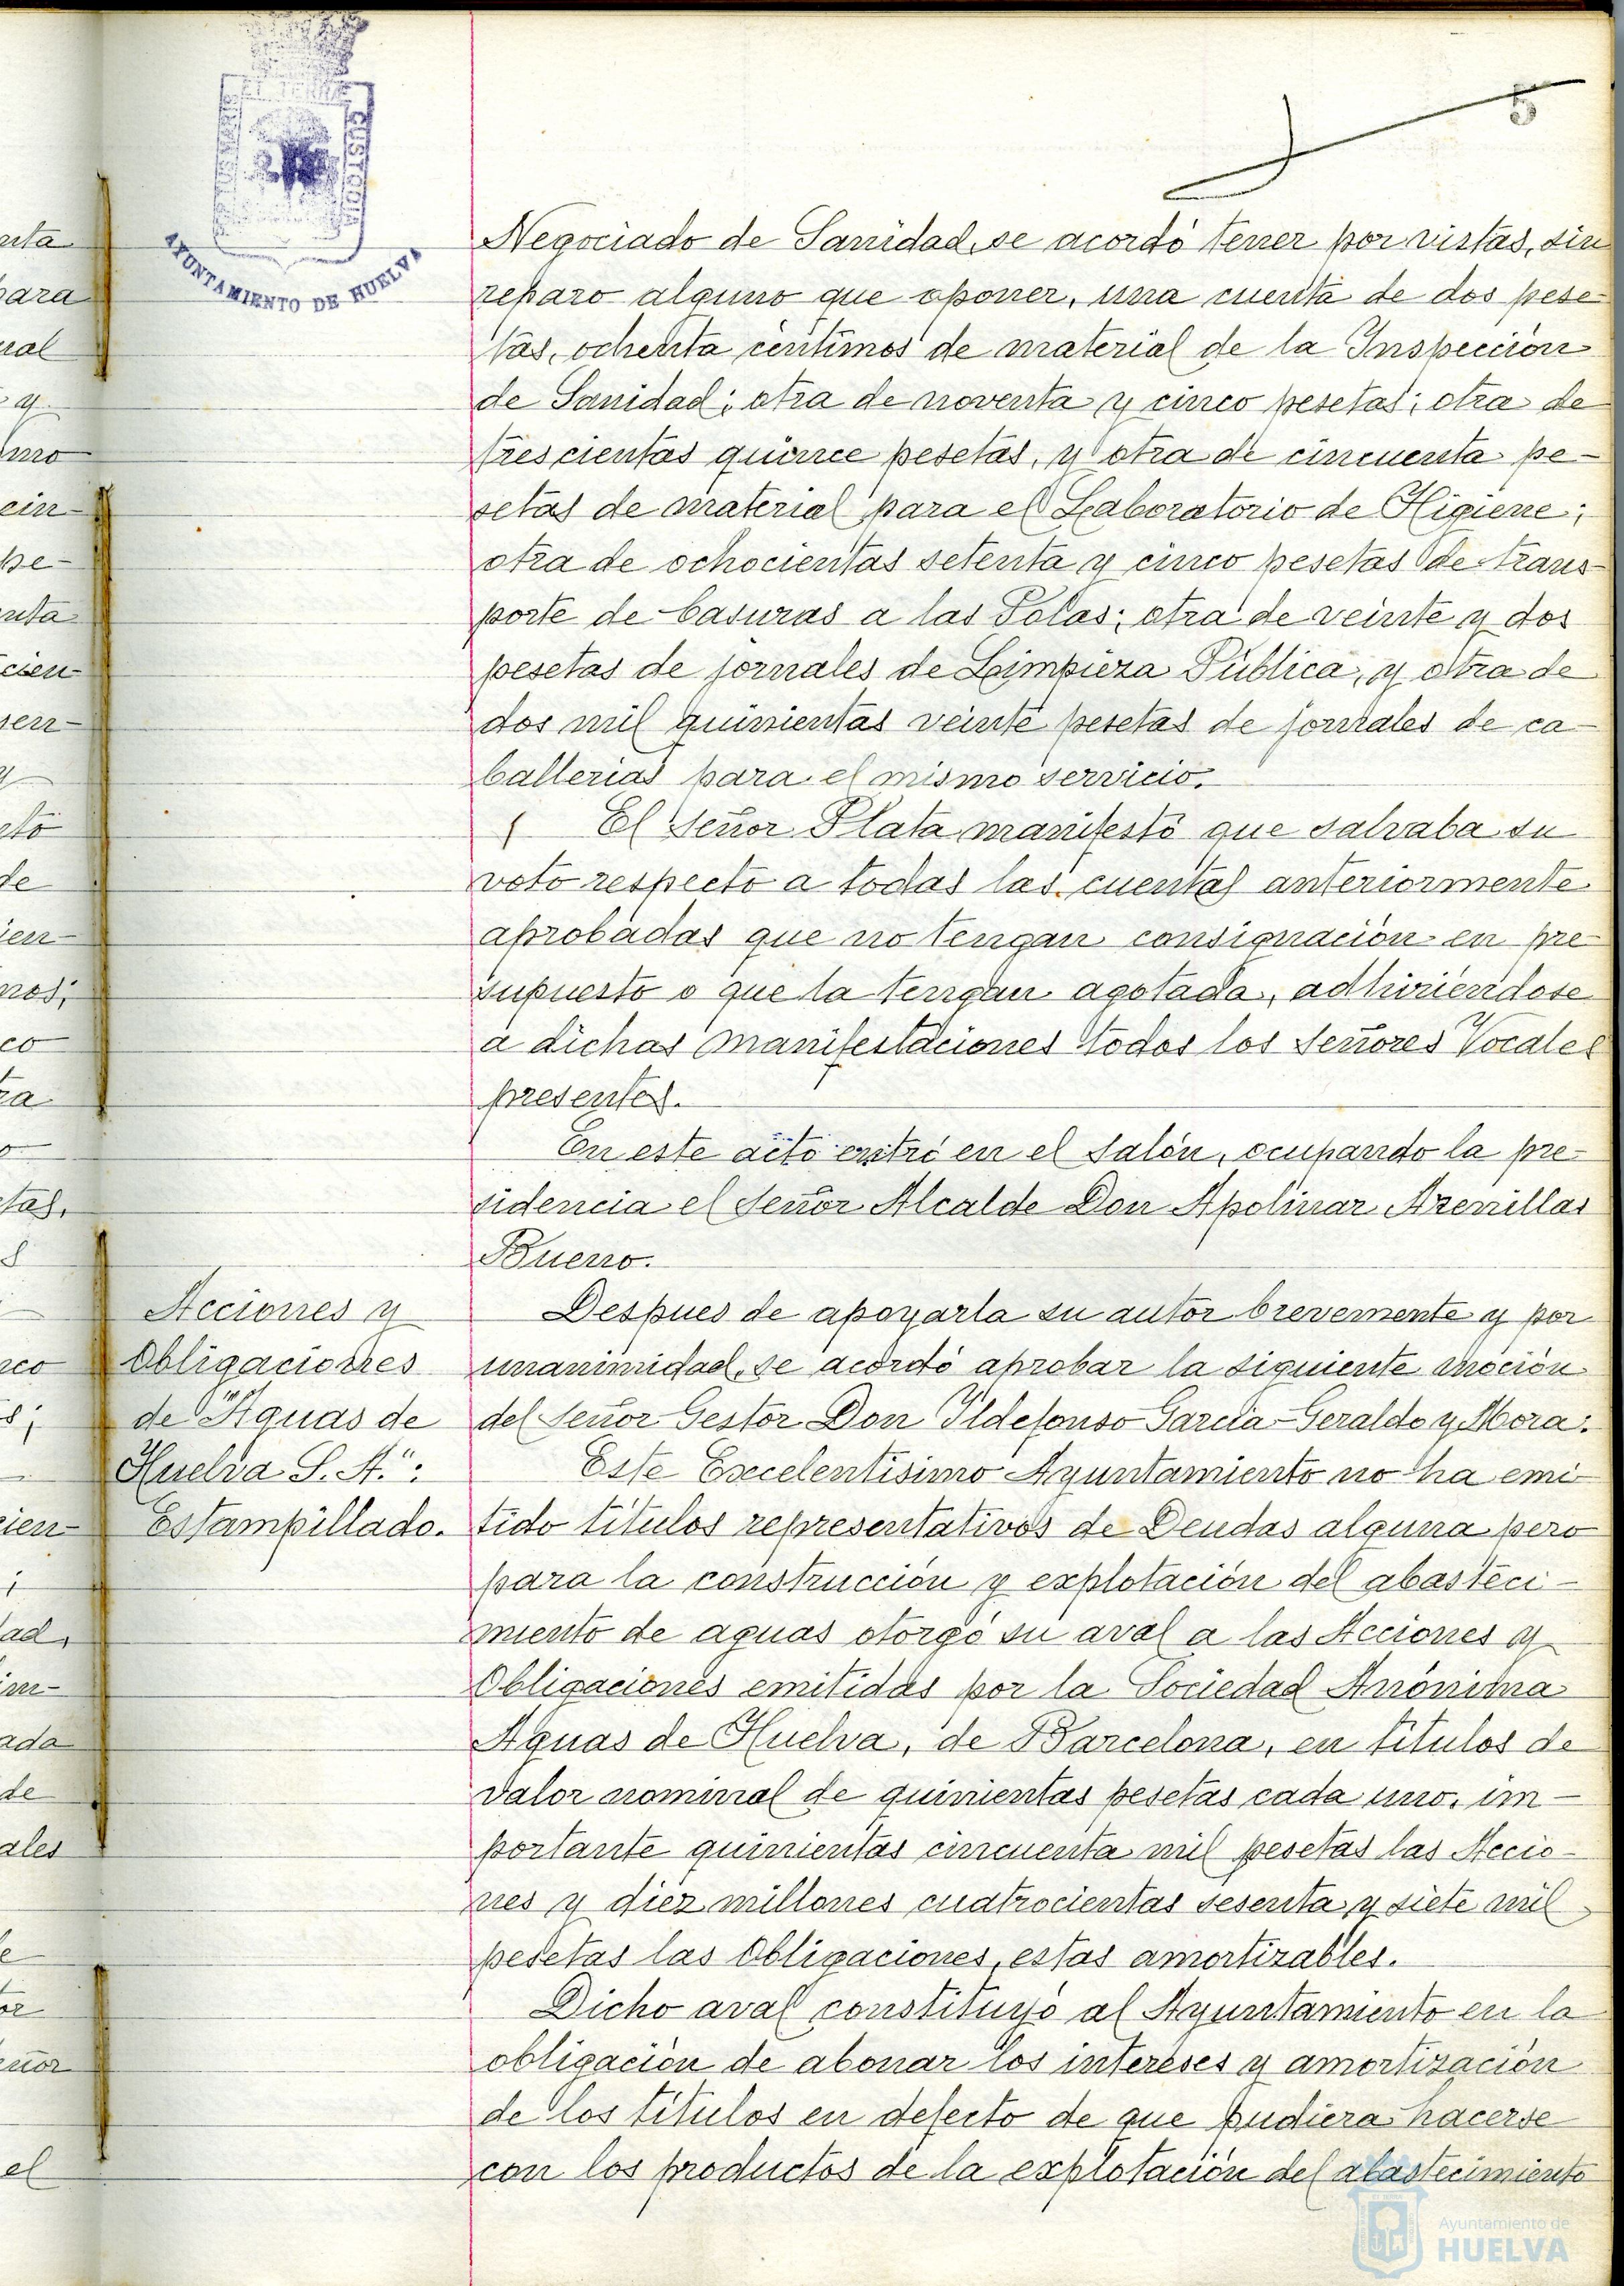 5
PORTUS MARIS ET TERRÆ CUSTODIA
AYUNTAMIENTO DE HUELVA
Negociado de Sanidad, se acordó tener por vistas, sin
reparo alguno que oponer, una cuenta de dos pese-
tas, ochenta céntimos de material de la Inspección
de Sanidad; otra de noventa y cinco pesetas; otra de
trescientas quince pesetas, y otra de cincuenta pe-
setas de material para el Laboratorio de Higiene;
otra de ochocientas setenta y cinco pesetas de trans-
porte de basuras a las Polas; otra de veinte y dos
pesetas de jornales de Limpieza Pública, y otra de
dos mil quinientas veinte pesetas de jornales de ca-
ballerias para el mismo servicio.
El señor Plata manifestó que salvaba su
voto respecto a todas las cuentas anteriormente
aprobadas que no tengan consignación en pre-
supuesto o que la tengan agotada, adhiriéndose
a dichas manifestaciones todos los señores Vocales
presentes.
En este acto entró en el salón, ocupando la pre-
sidencia el señor Alcalde Don Apolinar Arenillas
Bueno.
Acciones y
Obligaciones
de "Aguas de
Huelva S. A.":
Estampillado.
Despues de apoyarla su autor brevemente y por
unanimidad, se acordó aprobar la siguiente moción
del señor Gestor Don Ildefonso Garcia-Geraldo y Mora:
Este Excelentisimo Ayuntamiento no ha emi-
tido titulos representativos de Deudas alguna pero
para la construcción y explotación del abasteci-
miento de aguas otorgó su aval a las Acciones y
Obligaciones emitidas por la Sociedad Anónima
Aguas de Huelva, de Barcelona, en titulos de
valor nominal de quinientas pesetas cada uno, im-
portante quinientas cincuenta mil pesetas las Accio-
nes y diez millones cuatrocientas sesenta y siete mil
pesetas las Obligaciones, estas amortizables.
Dicho aval constituyó al Ayuntamiento en la
obligación de abonar los intereses y amortización
de los titulos en defecto de que pudiera hacerse
con los productos de la explotación del abastecimiento
Ayuntamiento de
HUELVA